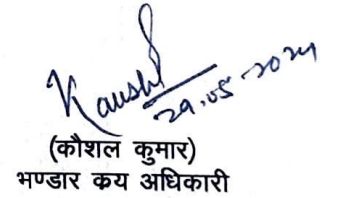 Kaushl
29.05.2024
(कौशल कुमार)
भण्डार कय अधिकारी